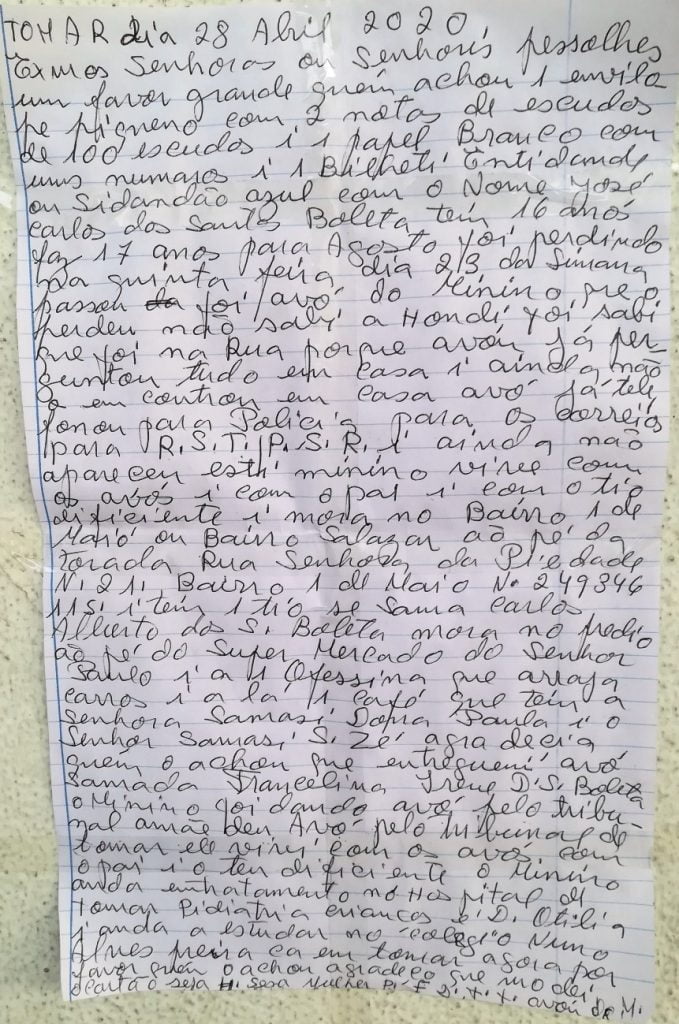 TOMAR dia 28 Abril 2020
Exmos Senhoras ou Senhoris pessolhes
um favor grande quem achou 1 envilo
pe piqueno com 2 notas de escudos
de 100 escudos i 1 papel Branco com
uns numaros i 1 Bilheti Entidande
ou Sidandão azul com o Nome José
carlos dos Santos Boleta tem 16 anos
faz 17 anos para Agosto foi perdindo
na quinta feira dia 23 da Simana
passou foi avó do Minino que o
perdeu não sabi a Hondi foi sabi
que foi na Rua porque avóu já per-
guntou tudo em casa i ainda não
o em controu em casa avó já tele
fonou para Policia para os correios
para R.S.T. P.S.R. i ainda não
apareceu esti minino vive com
os avós i com o pai i com o tio
dificiente i mora no Bairo 1 de
Maió ou Bairo Salazar ao pé da
torada Rua Senhora da Piedade
N. 21. Bairro 1 de Maio No 249346
115. i tem 1 tio se sama carlos
Alberto dos S. Boleta mora no predio
ao pé do Super Mercado do Senhor
Paulo i a 1 Ofessina que arraja
carros i a la 1 café que tem a
Senhora Samasi Dona Paula i o
Senhor Samasi S. Zé agradecia
quem o achou que entregueni avó
Samada Francelina Irene D.S. Boleta
o Minino foi dando avó pelo tribu-
nal amãe deu Avó pelo tribunal de
tomar ele vivi com os avós com
o pai i o teu dificiente o Minino
anda emtratamento no Hos pital de
tomar Pidiatria crianças é D. Otilia
i anda a estudar no colegio Nuno
Alves preira ca em tomar agora por
favor quem o achou agradeço que mo dei
o cartão seja H. seja Mulher avóu do M.